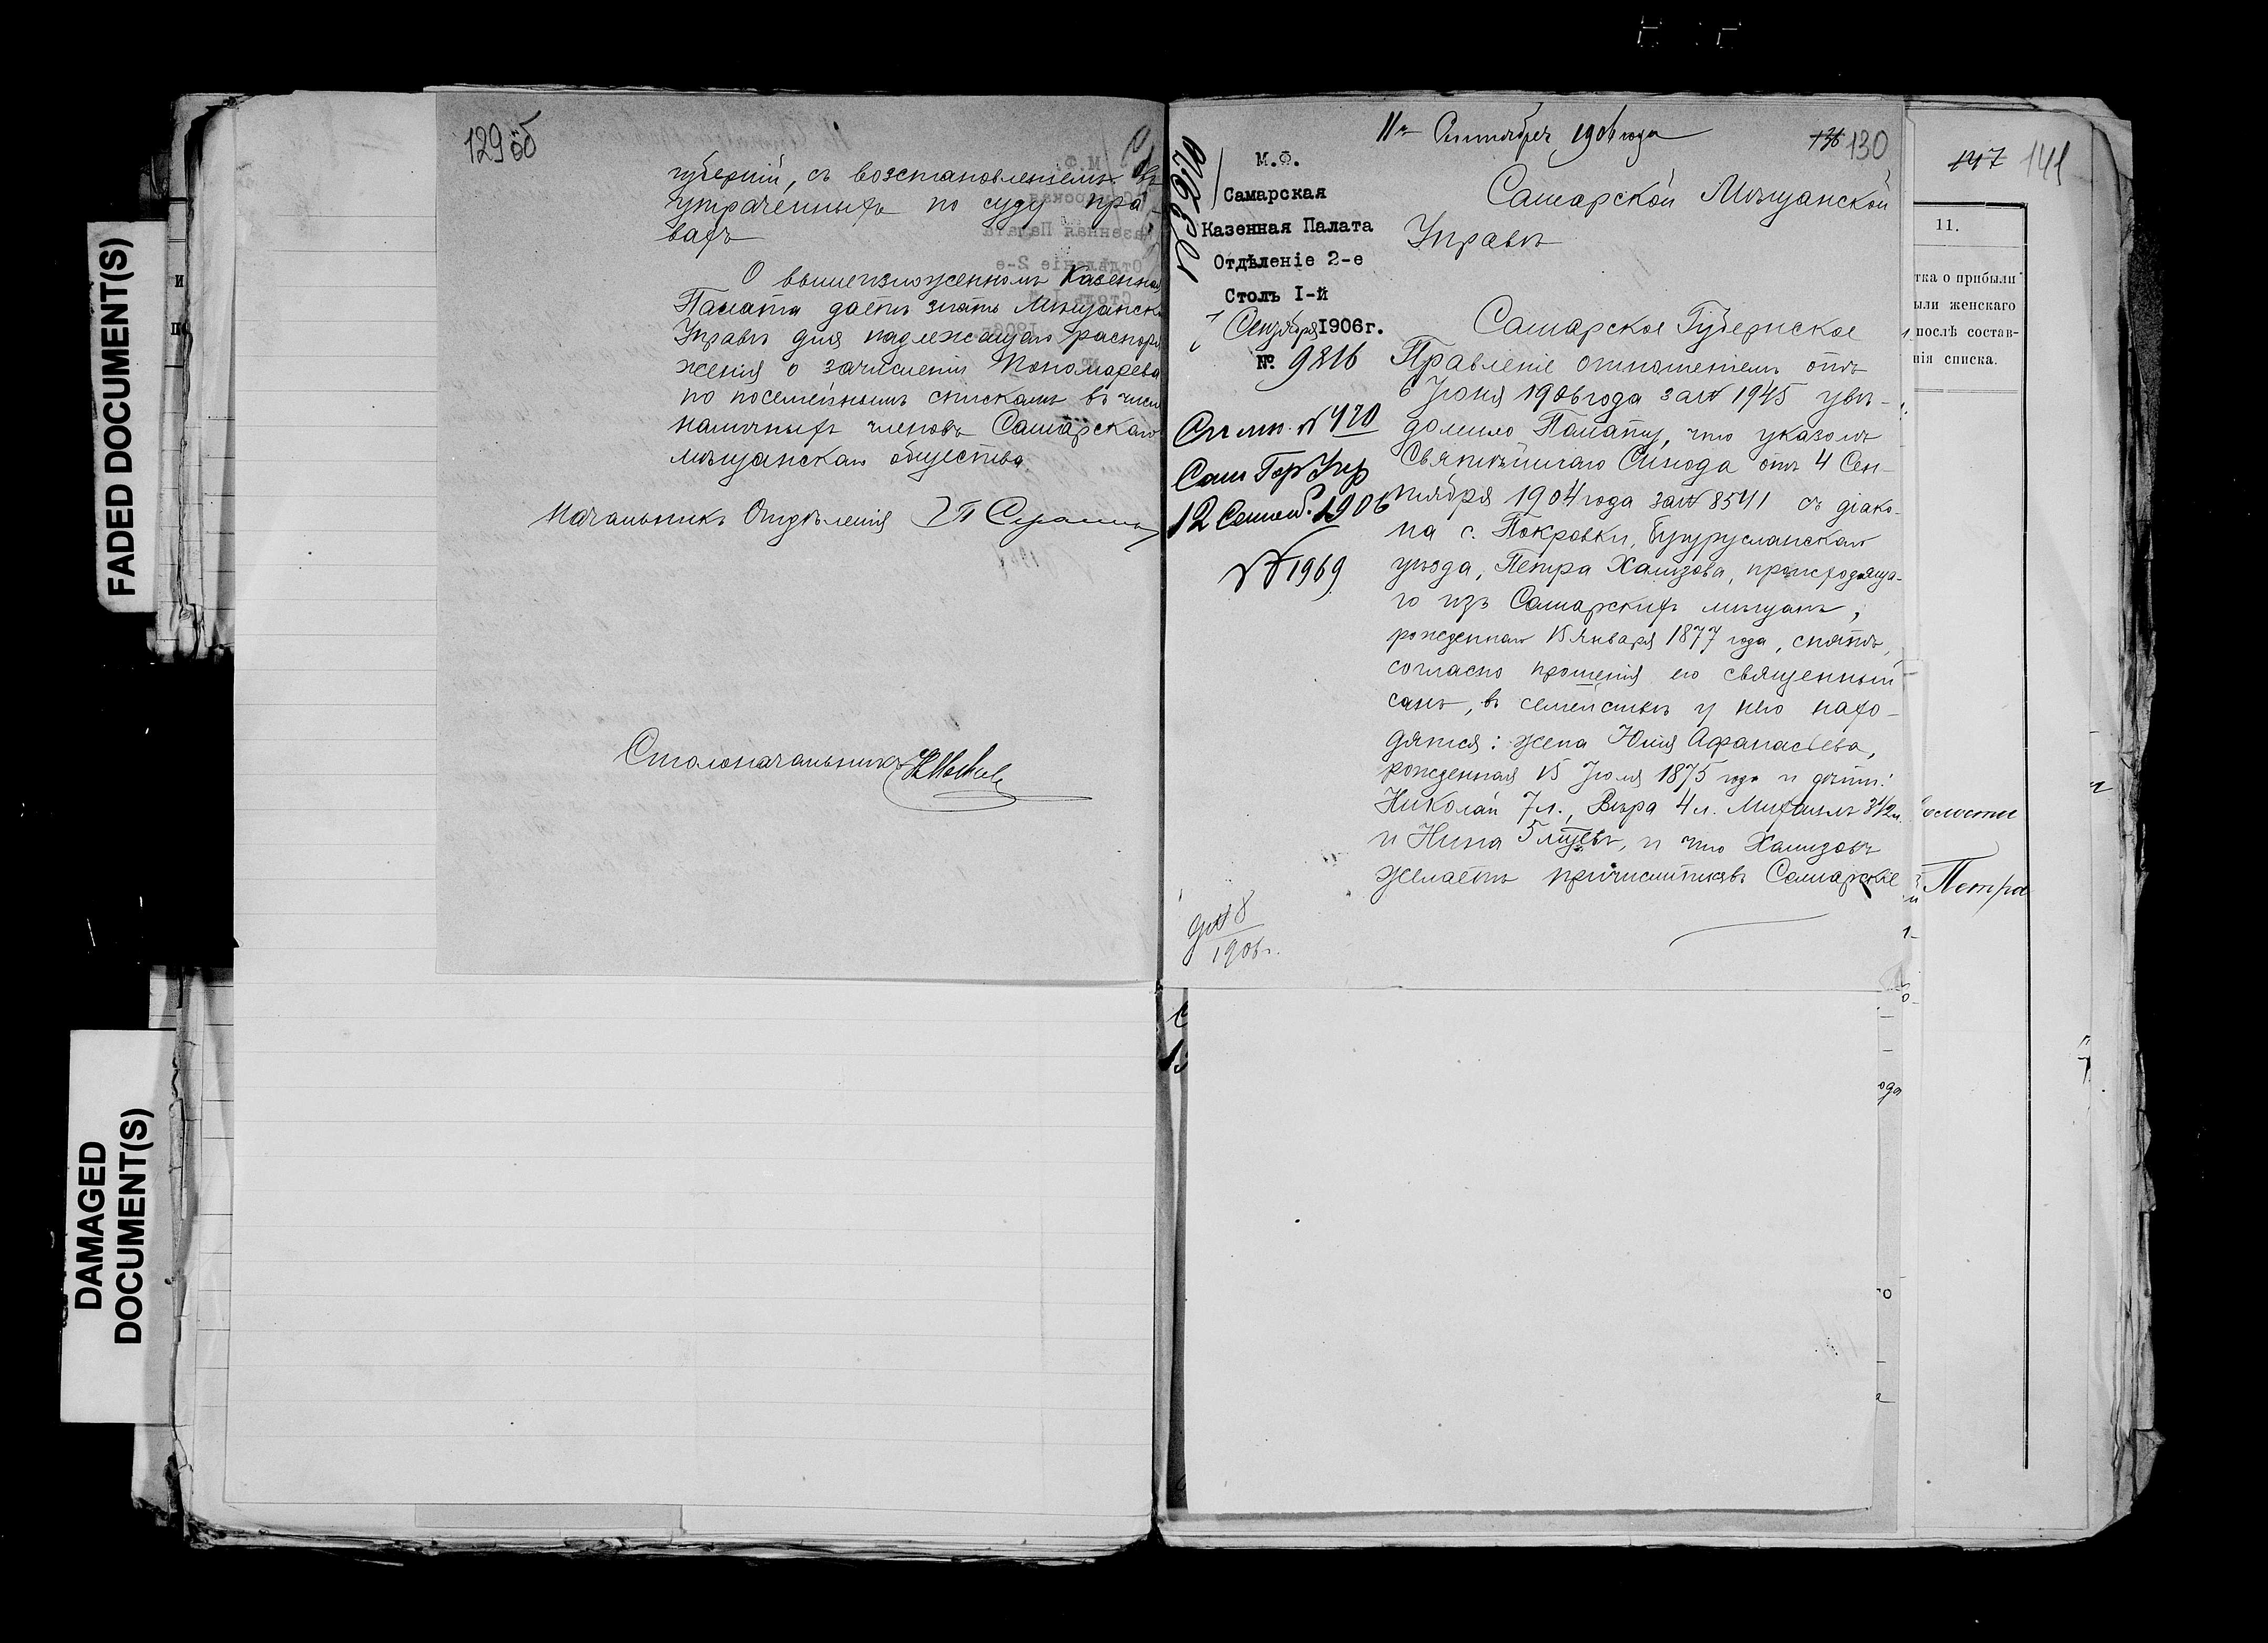 FADED DOCUMENT(S)
DAMAGED
DOCUMENT(S)
129об
губерніи, съ возстановленіемъ
утраченныхъ по суду пра-
вахъ
О вышеизложенномъ Казенная
Палата даетъ знать Мѣщанск
Управѣ для надлежащаго распоря
женія о зачисленіи Пономарева
по посемейнымъ спискамъ въ число
наличныхъ членовъ Самарскаго
мѣщанскаго общества.
Начальникъ Отдѣленія
Столоначальникъ
11го Сентября 1906 года
130
№ 3270
М.Ф.
Самарская
Казенная Палата
Отдѣленіе 2-е
Столъ I-й
Сентября 1906г.
№ 9816
№ 470
Сам Гор Упр
12 Сентяб. 1906
№ 1969
Самарской Мѣщанской
Управѣ
Самарское Губернское
Правленіе отношеніемъ отъ
6 Іюня 1906 года за № 1945 увѣ-
домило Палату, что указомъ
Святѣйшаго Синода отъ 4 Сен-
тября 1904 года за № 8541 съ діако-
на с. Покровки, Бугурусланскаго
уѣзда, Петра Хализова, происходяща-
го изъ Самарскихъ мѣщанъ,
рожденнаго 15 Января 1877 года, снятъ,
согласно прошенія его священный
санъ, въ семействѣ у него нахо-
дятся: жена Юлія Афанасьева,
рожденная 15 Іюля 1875 года и дѣти:
Николай 7 л., Вѣра 4 л. Михаилъ 3 1/2 л.
и Нина 5 мѣсяцевъ, и что Хализовъ
желаетъ причислиться въ Самарскіе
1906г.
147 141
11.
тка о прибыли
ыли женскаго
послѣ состав-
нія списка.
Петра
ода